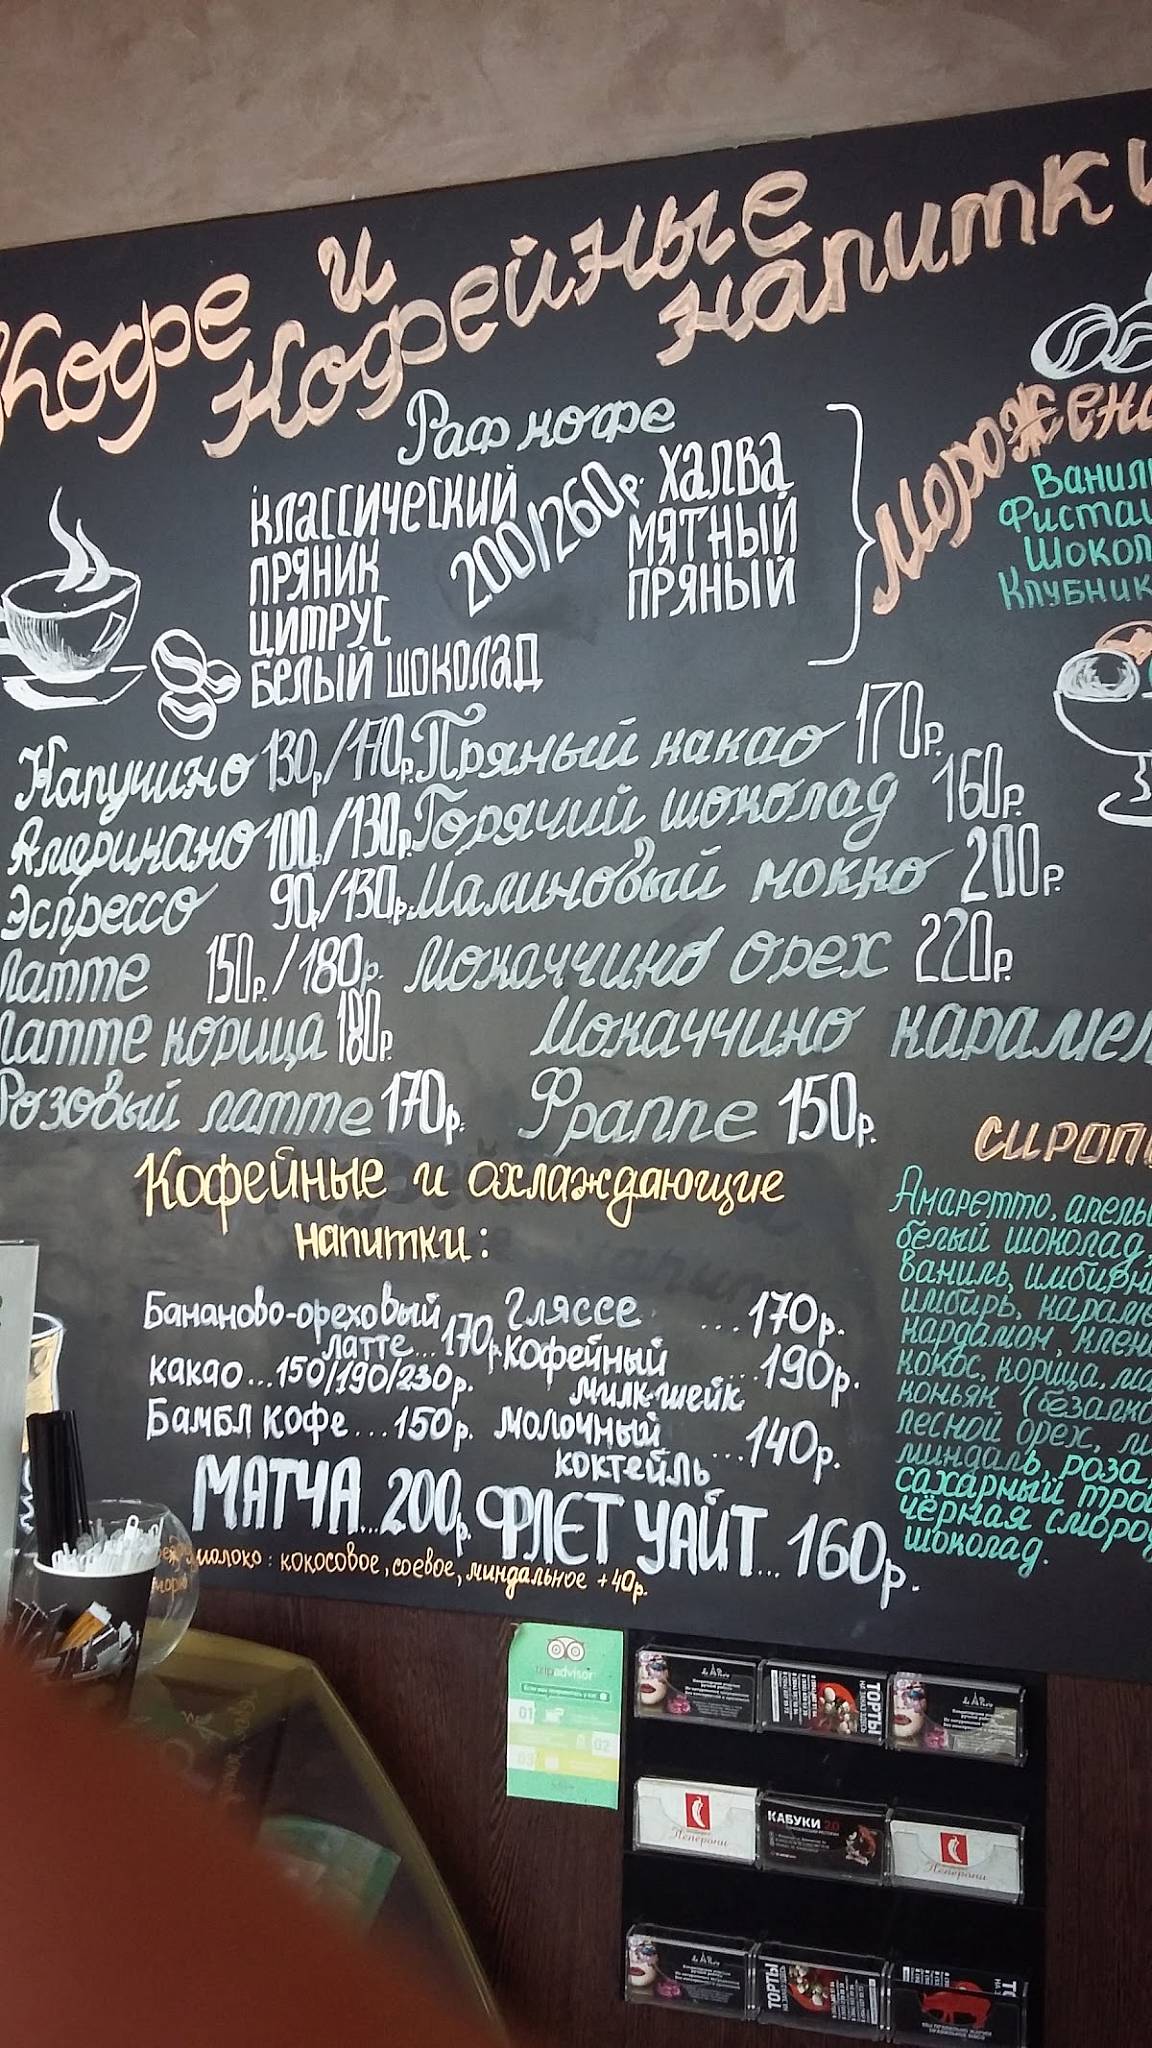 Кофе и
Кофейные
напитки
Раф кофе
КЛАССИЧЕСКИЙ
ПРЯНИК
ЦИТРУС
БЕЛЫЙ ШОКОЛАД
200/260р.
ХАЛВА
МЯТНЫЙ
ПРЯНЫЙ
Капучино 130р/170р.
Американо 100р/130р.
Эспрессо 90р/130р.
Латте 150р./180р.
Латте корица 180р.
Розовый латте 170р.
Пряный какао 170р.
Горячий шоколад 160р.
Малиновый мокко 200р.
Мокаччино орех 220р.
Мокаччино карамел
Фраппе 150р.
Морожен
Ваниль
Фисташ
Шокол
Клубник
Кофейные и охлаждающие
напитки:
Бананово-ореховый
латте...170р.
какао...150/190/230р.
Бамбл кофе...150р.
МАТЧА...200р.
Гляссе ...170р.
кофейный
милк-шейк ...190р.
молочный
коктейль ...140р.
ФЛЕТ УАЙТ...160р.
молоко: кокосовое, соевое, миндальное +40р.
СИРОП
Амаретто, апель
белый шоколад,
ваниль, имбирн
имбирь, караме
кардамон, клен
кокос, корица, ма
коньяк (безалко
лесной орех, 
миндаль, роза,
сахарный трос
чёрная сморо
шоколад.
tripadvisor
01
02
03
ТОРТЫ
НА ЗАКАЗ
Пеперони
КАБУКИ 2.0
Пеперони
ТОРТЫ